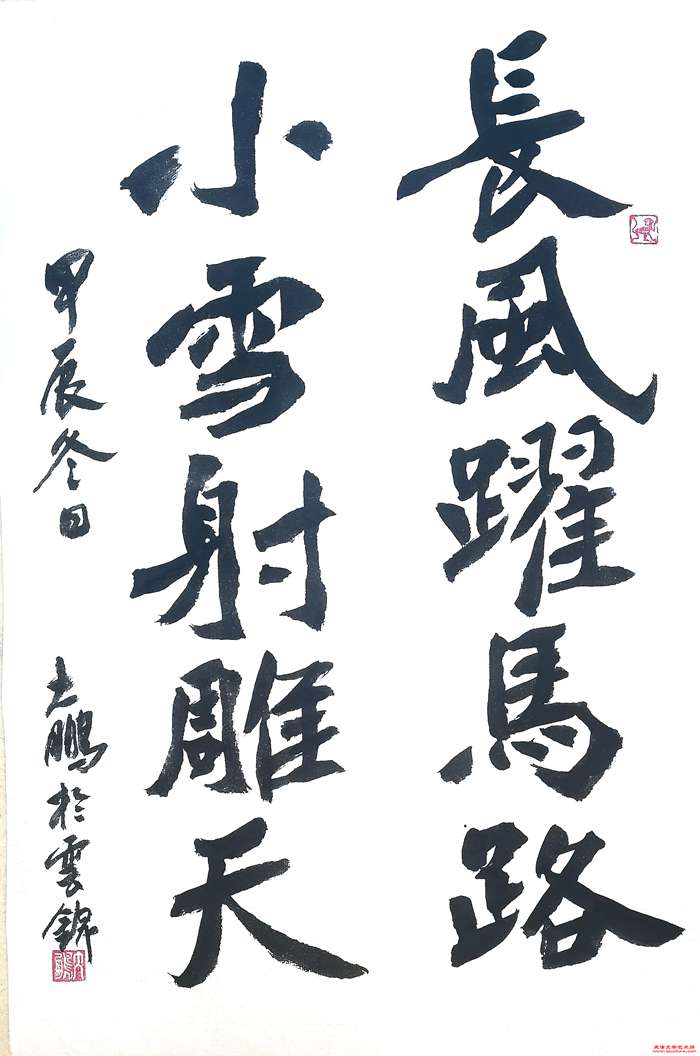 長風躍馬路
小雪射雕天
甲辰冬日
大鵬於雲錦